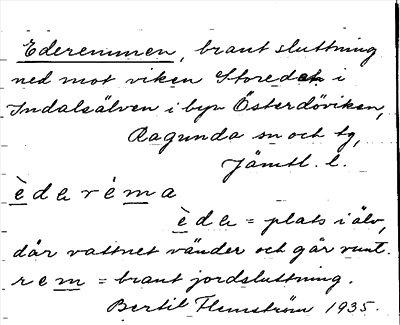 Ederemmen, brant sluttning
ned mot viken Storedet i
Indalsälven i byn Österdöviken,
Ragunda sn och tg,
Jämtl. l.
è d a r é m a
è d a = plats i älv,
där vattnet vänder och går runt.
r e m = brant jordsluttning.
Bertil Flemström 1935.